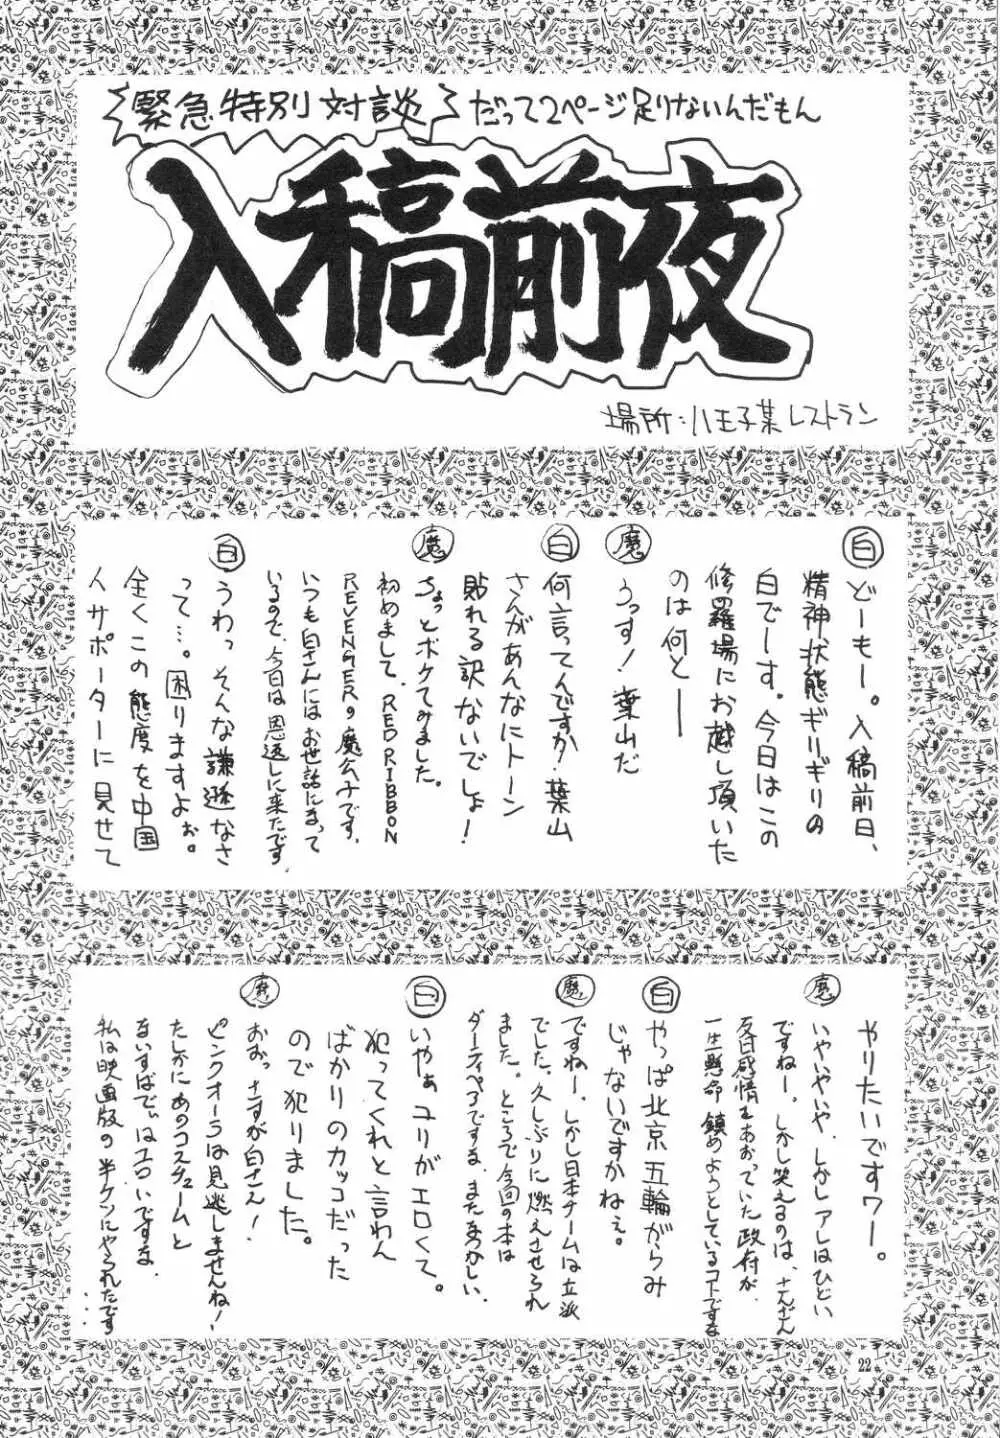 緊急特別対談 だって2ページ足りないんだもん
入稿前夜
場所:八王子某レストラン
白 どーもー。入稿前日、
精神状態ギリギリの
白でーす。今日はこの
修羅場にお越し頂いた
のは何と――
魔 うっす! 葉山だ
白 何言ってんですか!葉山
さんがあんなにトーン
貼れる訳ないでしょ!
魔 ちょっとボケてみました。
初めまして、RED RIBBON
REVENGERの魔公子です。
いつも白さんにはお世話になって
いるので、今日は恩返しに来たです
白 うわっ そんな謙遜なさ
って…。困りますよぉ。
全くこの態度を中国
人サポーターに見せて
やりたいですワー。
魔 いやいやいや、しかしアレはひどい
ですねー。しかし笑えるのは、さんざん
反日感情をあおっていた政府が、
一生懸命 鎮めようとしているコトですな
白 やっぱ北京五輪がらみ
じゃないですかねぇ。
魔 ですねー。しかし日本チームは立派
でした。久しぶりに燃えさせられ
ました。ところで今回の本は
ダーティペアですな、またなつかしい。
白 いやぁ、ユリがエロくて。
犯ってくれと言わん
ばかりのカッコだった
ので犯りました。
魔 おおっ さすが白さん!
ピンクオーラは見逃しませんね!
たしかにあのコスチュームと
ないすばでぃはエロいですな
私は映画版の半ケツにやられたです
…
22